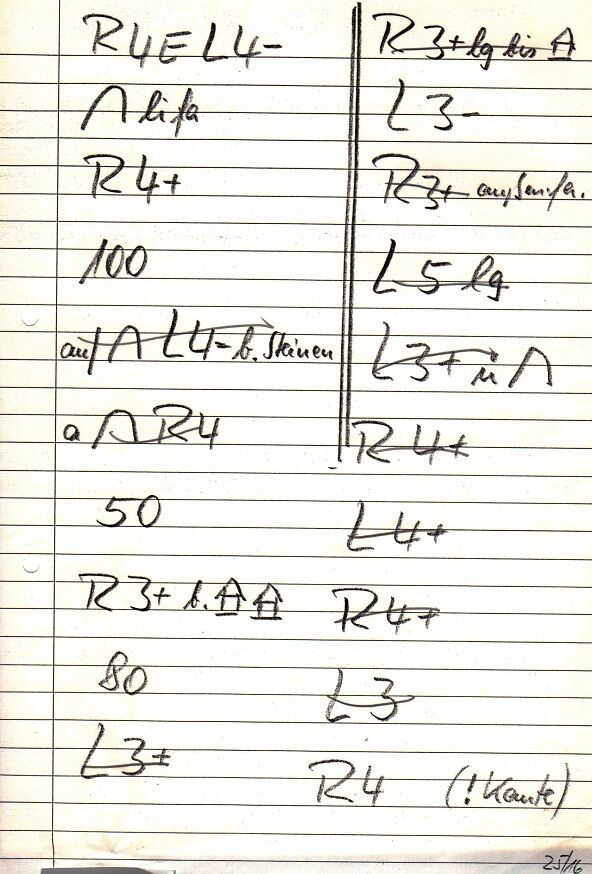 R4E L4-
∩ lifa
R4+
100
auf ∩ L4- b. Steinen
a ∩ R4
50
R3+ b.
80
L3+
R3+ lg bis
L3-
R3+ außenfa.
L5 lg
L3+ ü ∩
R4+
L4+
R4+
L3
R4 (! Kante)
25/16